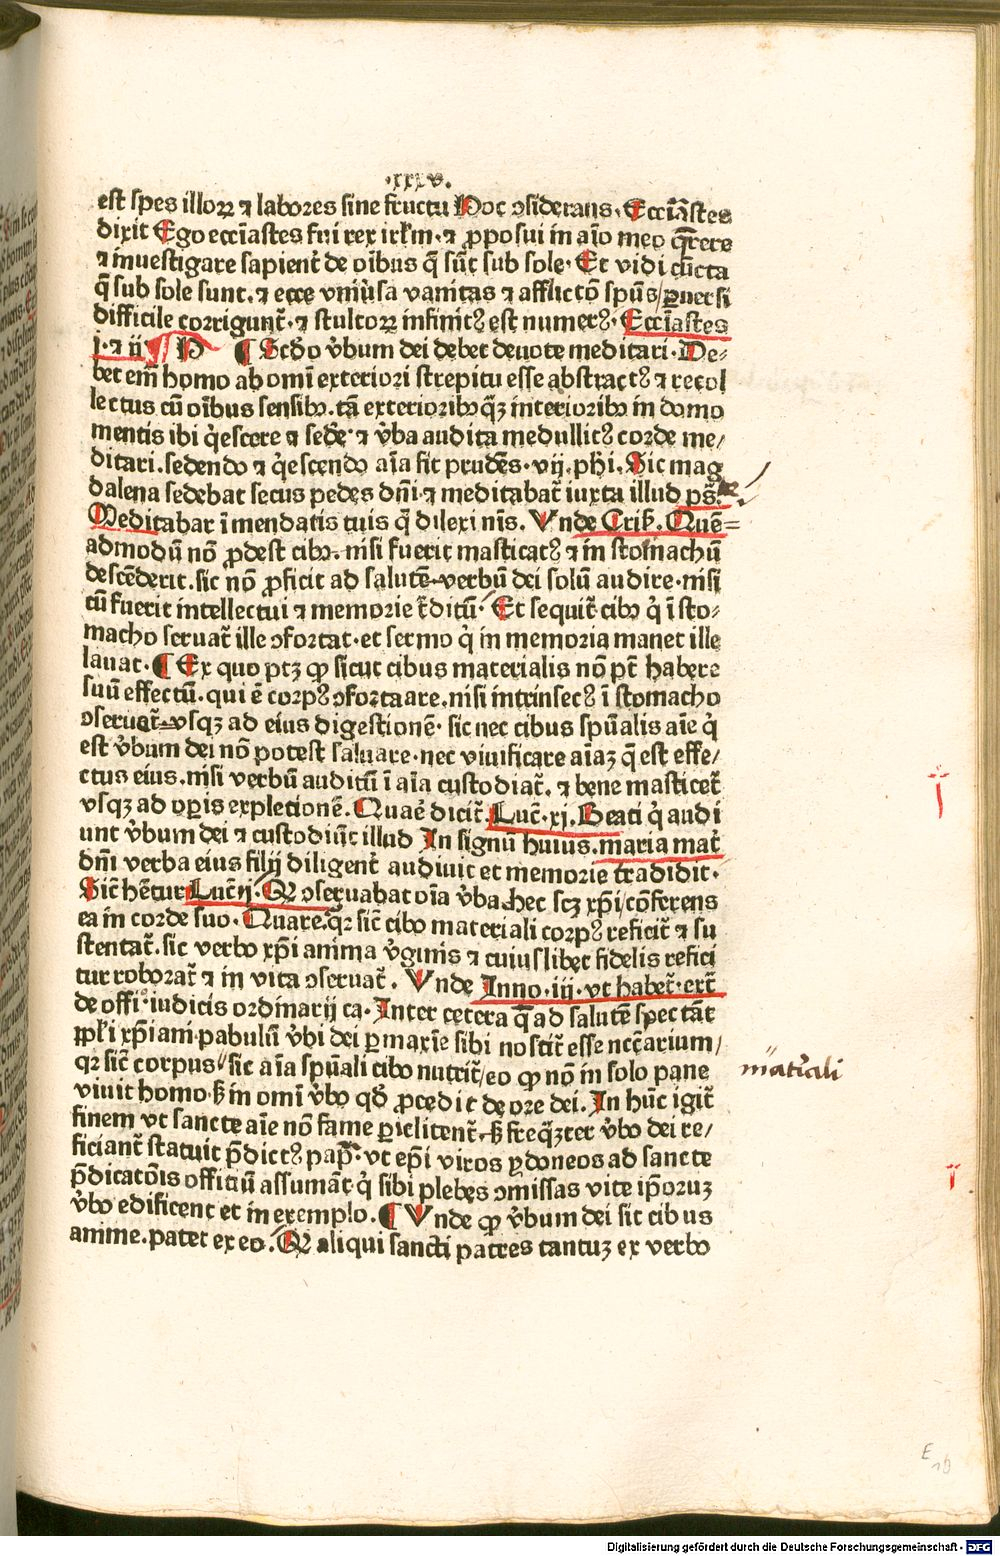 .xxxv.
est spes illoꝝ ⁊ labores sine fructu Hoc ↄsiderans. Ecci̅astes
dixit Ego ecci̅astes fui rex irl̅m. ⁊ ꝓposui in ai̅o meo q̅rere
⁊ inuestigare sapient̅ de oi̅bus q̅ su̅t sub sole. Et vidi cu̅cta
q̅ sub sole sunt. ⁊ ecce vniu̓sa vanitas ⁊ afflicto̅ spu̅s/ ꝑuersi
difficile corrigunt̅. ⁊ stultoꝝ infinitꝰ est numerꝰ. Ecci̅astes
j. ⁊ ij ¶ Scd̅o v̓bum dei debet deuote meditari. De⸗
bet em̅ homo ab omi̅ exteriori strepitu esse abstractꝰ ⁊ recol
lectus cu̅ oi̅bus sensibꝫ. ta̅ exterioribꝫ q̅ꝫ interioribꝫ in domo
mentis ibi q̓escere ⁊ sede̓ ⁊ v̓ba audita medullitꝰ corde me/
ditari. sedendo ⁊ q̓escendo ai̅a fit prude̅s. vij. phi. Sic mag
dalena sedebat secus pedes dn̅i ⁊ meditabat̅ iuxta illud ps̅.
Meditabar i̅ mendatis tuis q̅ dilexi ni̅s. Vnde Cris̅. Que̅⸗
admodu̅ no̅ ꝓdest cibꝰ. nisi fuerit masticatꝰ ⁊ in stomachu̅
desce̅derit. sic no̅ ꝓficit ad salute̅ verbu̅ dei solu̅ audire. nisi
cu̅ fuerit intellectui ⁊ memorie t̅ditu̅. Et sequit̅ cibꝰ q̓ i̅ sto⸗
macho seruat̅ ille ↄfortat. et sermo q̓ in memoria manet ille
lauat. ¶ Ex quo ptꝫ ꝙ sicut cibus materialis no̅ pt̅ habere
suu̅ effectu̅. qui e̅ corpꝰ ↄfortaare. nisi intrinsecꝰ i̅ stomacho
ↄseruat̅ vsqꝫ ad eius digestione̅. sic nec cibus spu̅alis ai̅e q̓
est v̓bum dei no̅ potest saluare. nec viuificare ai̅aꝫ q̅ est effe/
ctus eius. nisi verbu̅ auditu̅ i̅ ai̅a custodiat̅. ⁊ bene masticet̅
vsqꝫ ad oꝑis expletione̅. Quae̓ dicit̅. Luc̅. xj. Beati q̓ audi
unt v̓bum dei ⁊ custodiu̅t illud In signu̅ huius. maria mat̅
dn̅i verba eius filij diligent̅ audiuit et memorie tradidit.
Sic̅ he̅tur Luc̅ ij. Qꝛ ↄseruabat oi̅a v̓ba hec scꝫ xp̅i/ co̅ferens
ea in corde suo. Quare. qꝛ sic̅ cibo materiali corpꝰ reficit̅ ⁊ su
stentat̅. sic verbo xp̅i anima v̓ginis ⁊ cuiuslibet fidelis refici
tur roborat̅ ⁊ in vita ↄseruat̅. Vnde Inno. iij. vt habet̅. ext̅
de offi. iudicis ordinarij ca. Inter cetera q̅ ad salute̅ specta̅t
ppl̅i xp̅iani. pabulu̅ v̓bi dei ꝑ maxi̅e sibi noscit̅ esse nec̅arium/
qꝛ sic̅ corpus sic ai̅a spu̅ali cibo nutrit̅/ eo ꝙ no̅ in solo pane
matiali
viuit homo. sꝫ in omi̅ v̓bo qd̅ ꝓcedit de ore dei. In hu̅c igit̅
finem vt sancte ai̅e no̅ fame ꝑiclitent̅. sꝫ freq̅ꝫter v̓bo dei re/
ficiant̅ statuit p̅dictꝰ papa. vt ep̅i viros ydoneos ad sancte
p̅dicato̅is officiu̅ assuma̅t q̓ sibi plebes ↄmissas vite ip̅oruꝫ
v̓bo edificent et in exemplo. ¶ Vnde ꝙ v̓bum dei sit cibus
anime. patet ex eo. Qꝛ aliqui sancti patres tantuꝫ ex verbo
Digitalisierung gefördert durch die Deutsche Forschungsgemeinschaft - DFG